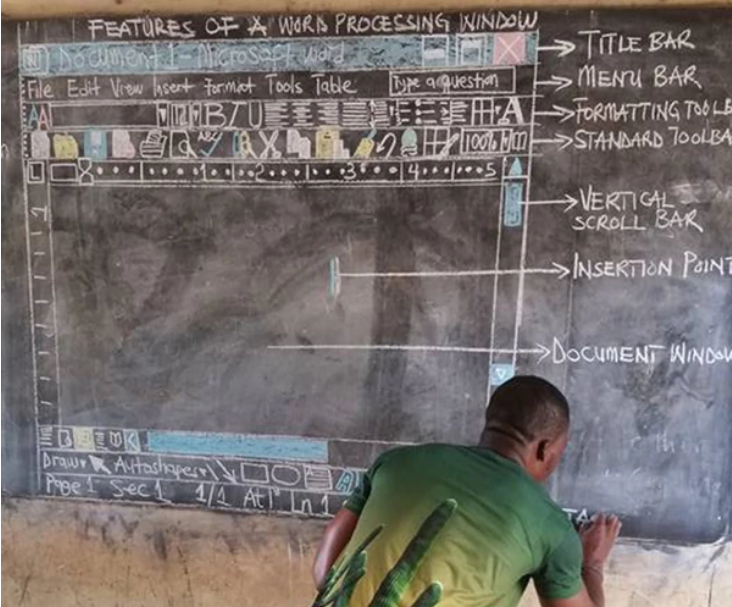 FEATURES OF A WORD PROCESSING WINDOW
W Document 1 - Microsoft Word
TITLE BAR
File Edit View Insert Format Tools Table
Type a question
MENU BAR
AA 12 B I U A
FORMATTING TOOLB
ABC 100%
STANDARD TOOLBA
L 1 2 3 4 5
VERTICAL
SCROLL BAR
1
INSERTION POINT
DOCUMENT WINDOW
Draw Autoshapes A
Page 1 Sec 1 1/1 At 1" Ln 1
TA